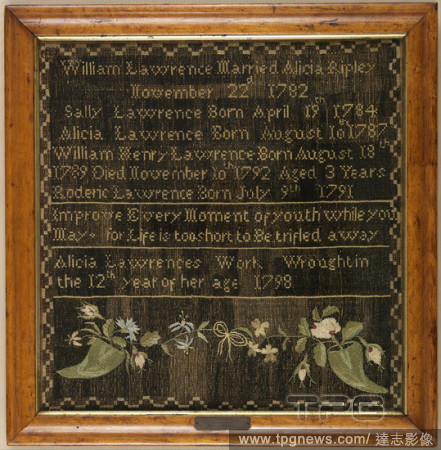 William Lawrence Married Alicia Ripley
November 22d 1782
Sally Lawrence Born April 19th 1784
Alicia Lawrence Born August 10 1787
William Henry Lawrence Born August 18th
1789 Died November 10th 1792 Aged 3 Years
Roderic Lawrence Born July 9th 1791
Improve Every Moment of youth While you
May for Life is too short to Be trifled away
Alicia Lawrences Work Wrought in
the 12th year of her age 1798
TPG
www.tpgnews.com/ 達志影像